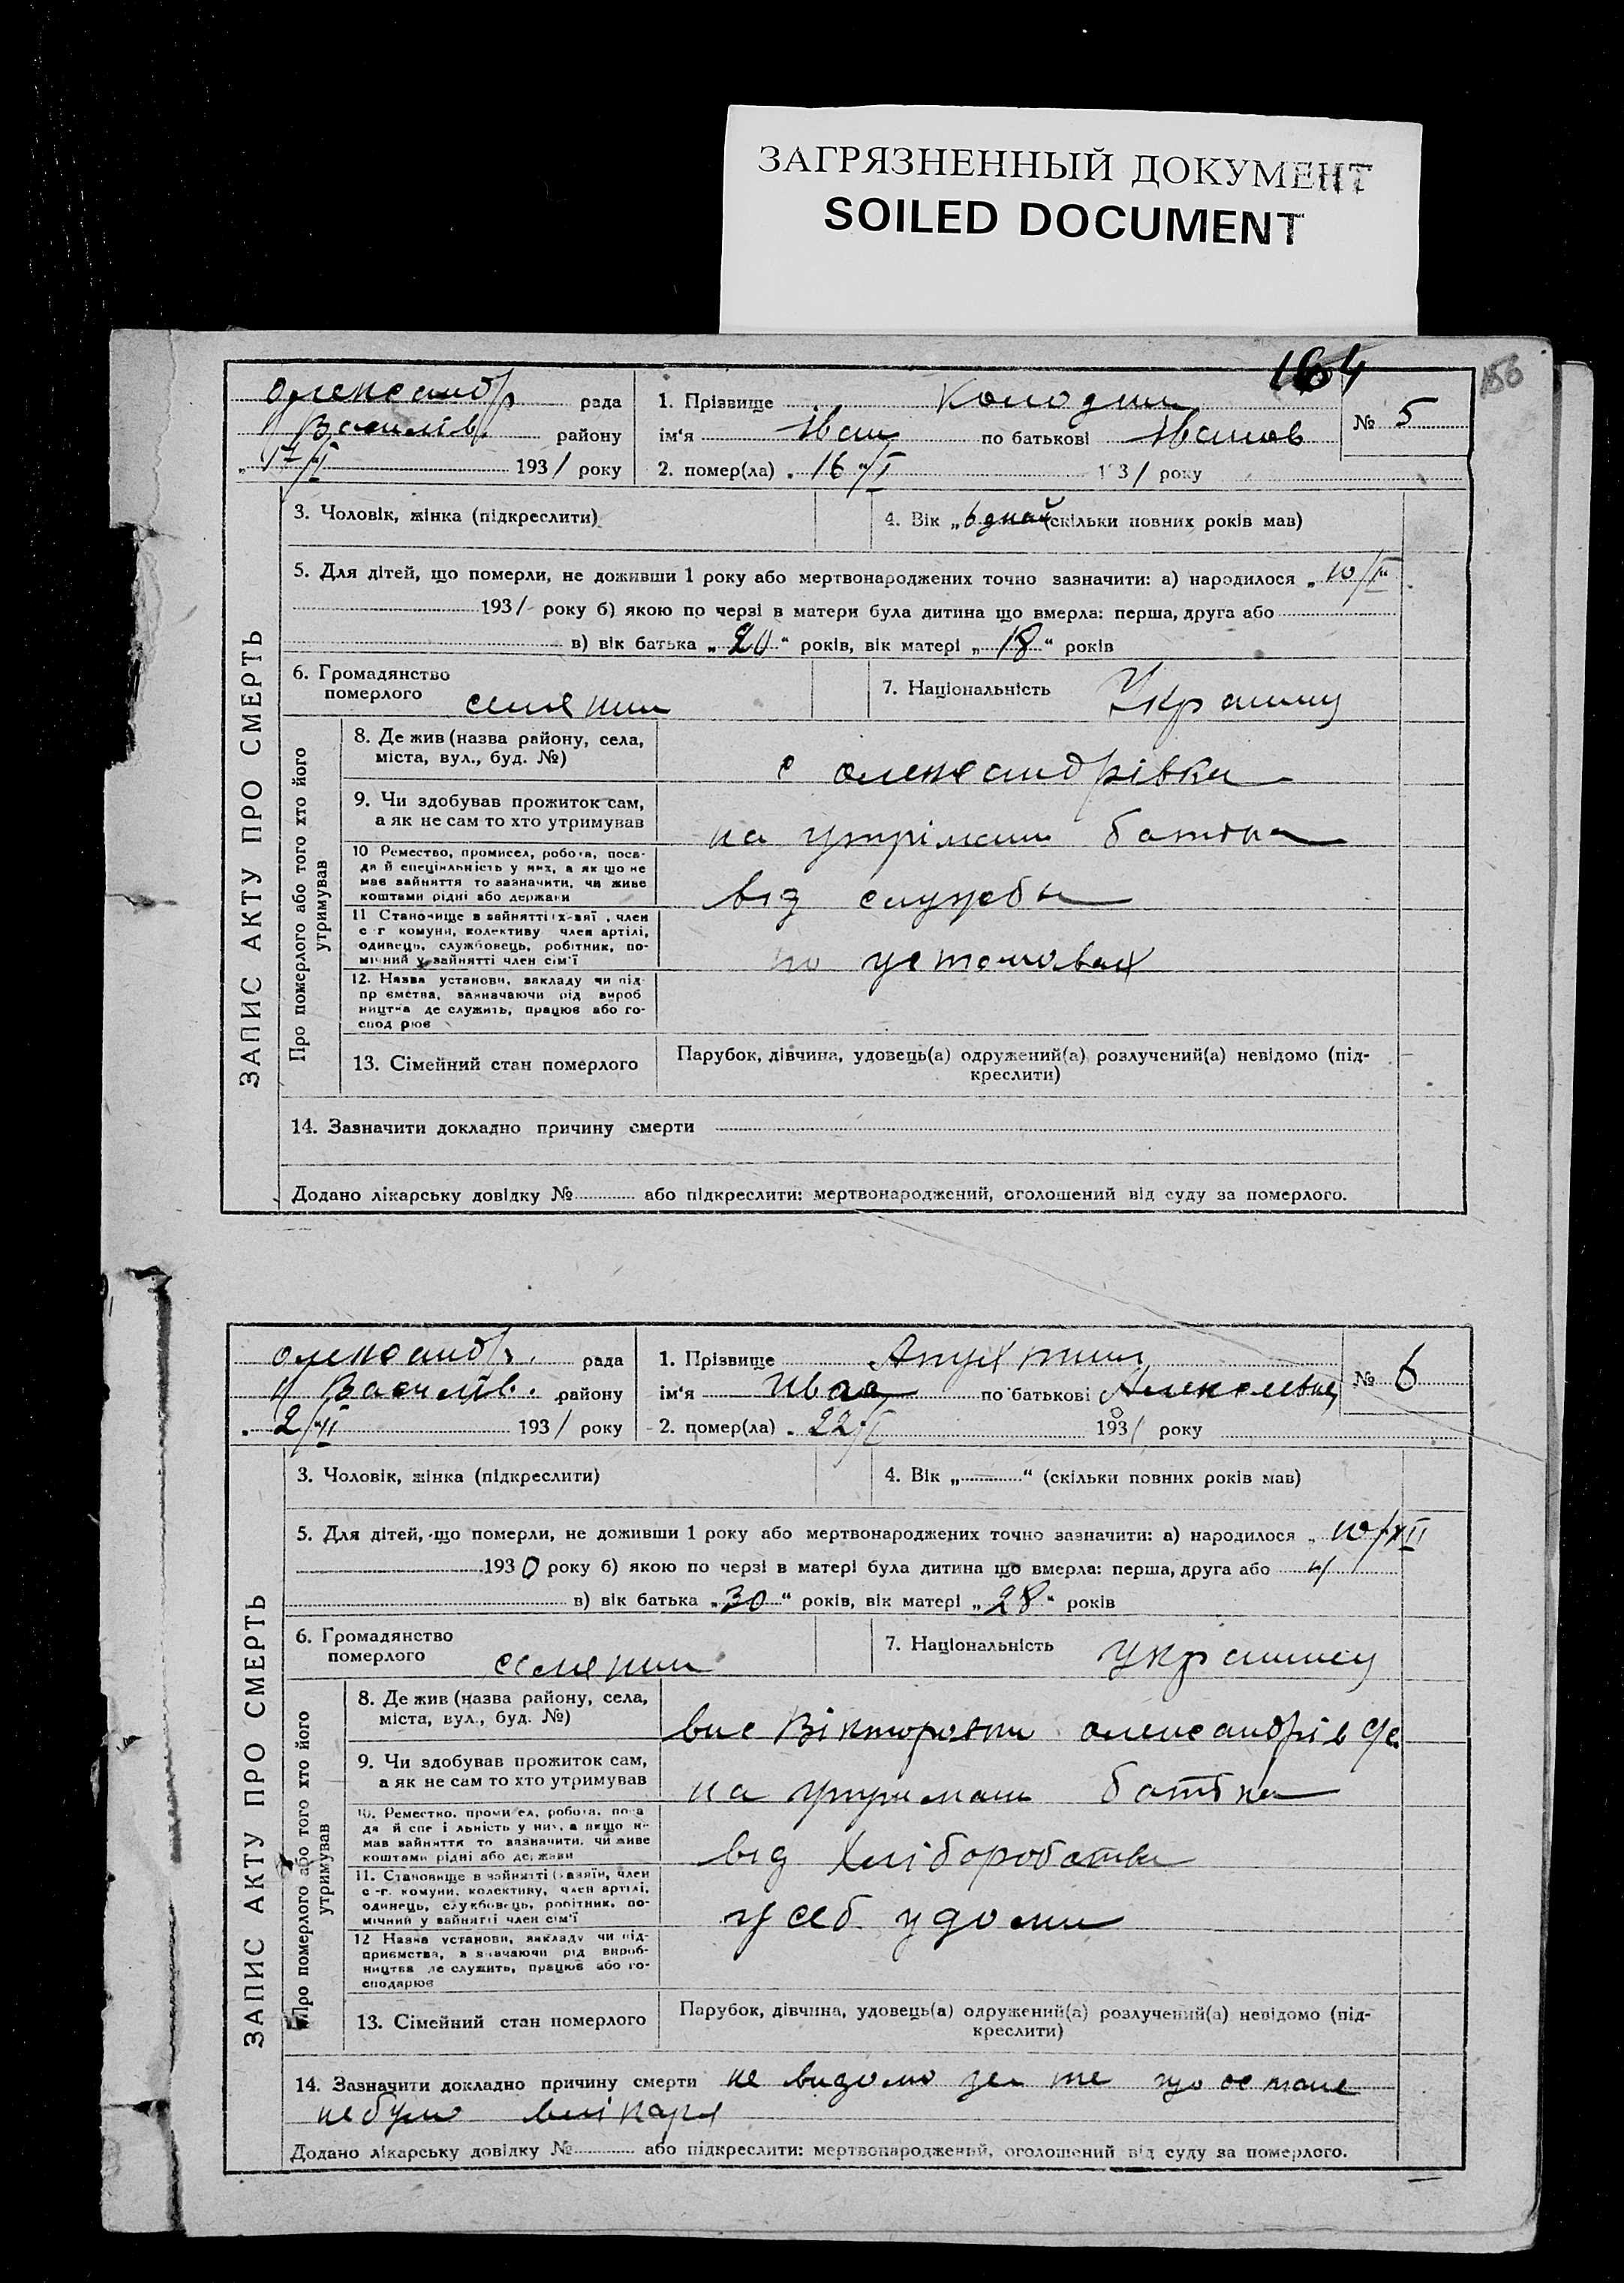 ЗАГРЯЗНЕННЫЙ ДОКУМЕНТ
SOILED DOCUMENT
164
156
Олександр рада 1. Прізвище Колодин № 5
Василів. району ім'я Іван по батькові Іванов
„17/I 1931 року 2. помер(ла) „16"/I 1931 року
3. Чоловік, жінка (підкреслити) 4. Вік „6 дней (скільки повних років мав)
5. Для дітей, що померли, не доживши 1 року або мертвонароджених точно зазначити: а) народилося „10/I“
1931 року б) якою по черзі в матери була дитина що вмерла: перша, друга або
в) вік батька „20“ років, вік матері „18“ років
6. Громадянство 7. Національність Украинц
померлого селянин
ЗАПИС АКТУ ПРО СМЕРТЬ
Про померлого або того хто його
утримував
8. Де жив (назва району, села,
міста, вул., буд. №)
с Олександрівка
9. Чи здобував прожиток сам,
а як не сам то хто утримував
на утрімани батька
10 Ремество, промисел, робота, поса-
да й спеціяльність у них, а як що не
мав зайняття то зазначити, чи живе
коштами рідні або держави
від службы
11 Становище в зайнятті х-зяї, член
с г комуни, колективу член артілі,
одинець, службовець, робітник, по-
мічний у зайнятті член сім'ї
по установах
12. Назва установи, закладу чи під-
пр ємства, зазначаючи рід вироб
ництва де служить, працює або го-
спод рює
13. Сімейний стан померлого Парубок, дівчина, удовець(а) одружений(а) розлучений(а) невідомо (під-
креслити)
14. Зазначити докладно причину смерти
Додано лікарську довідку № або підкреслити: мертвонароджений, оголошений від суду за померлого.
Олександр. рада 1. Прізвище № 6
Василів. району ім'я Иван по батькові Алексеевич
„2/II 1931 року 2. помер(ла) „22/I 1931 року
3. Чоловік, жінка (підкреслити) 4. Вік „ “ (скільки повних років мав)
5. Для дітей, що померли, не доживши 1 року або мертвонароджених точно зазначити: а) народилося „10/XII
1930 року б) якою по черзі в матері була дитина що вмерла: перша, друга або 4
в) вік батька „30“ років, вік матері „28“ років
6. Громадянство 7. Національність Украинец
померлого селянин
ЗАПИС АКТУ ПРО СМЕРТЬ
Про померлого або того хто його
утримував
8. Де жив (назва району, села,
міста, вул., буд. №)
вис Вікторовки Олександрів с/с
9. Чи здобував прожиток сам,
а як не сам то хто утримував
на утримани батька
10. Ремество, промисел, робота, поса
да й спеціяльність у них, а якщо не
мав зайняття то зазначити, чи живе
коштами рідні або держави
від Хліборобства
11. Становище в зайнятті (хазяїн, член
с-г. комуни, колективу, член артілі,
одинець, службовець, робітник, по-
мічний у зайнятті член сім'ї
у себ. удоми
12 Назва установи, закладу чи під-
приємства, зазначаючи рід вироб-
ництва де служить, працює або го-
сподарює
13. Сімейний стан померлого Парубок, дівчина, удовець(а) одружений(а) розлучений(а) невідомо (під-
креслити)
14. Зазначити докладно причину смерти не видомо за те що
небуло
Додано лікарську довідку № або підкреслити: мертвонароджений, оголошений від суду за померлого.